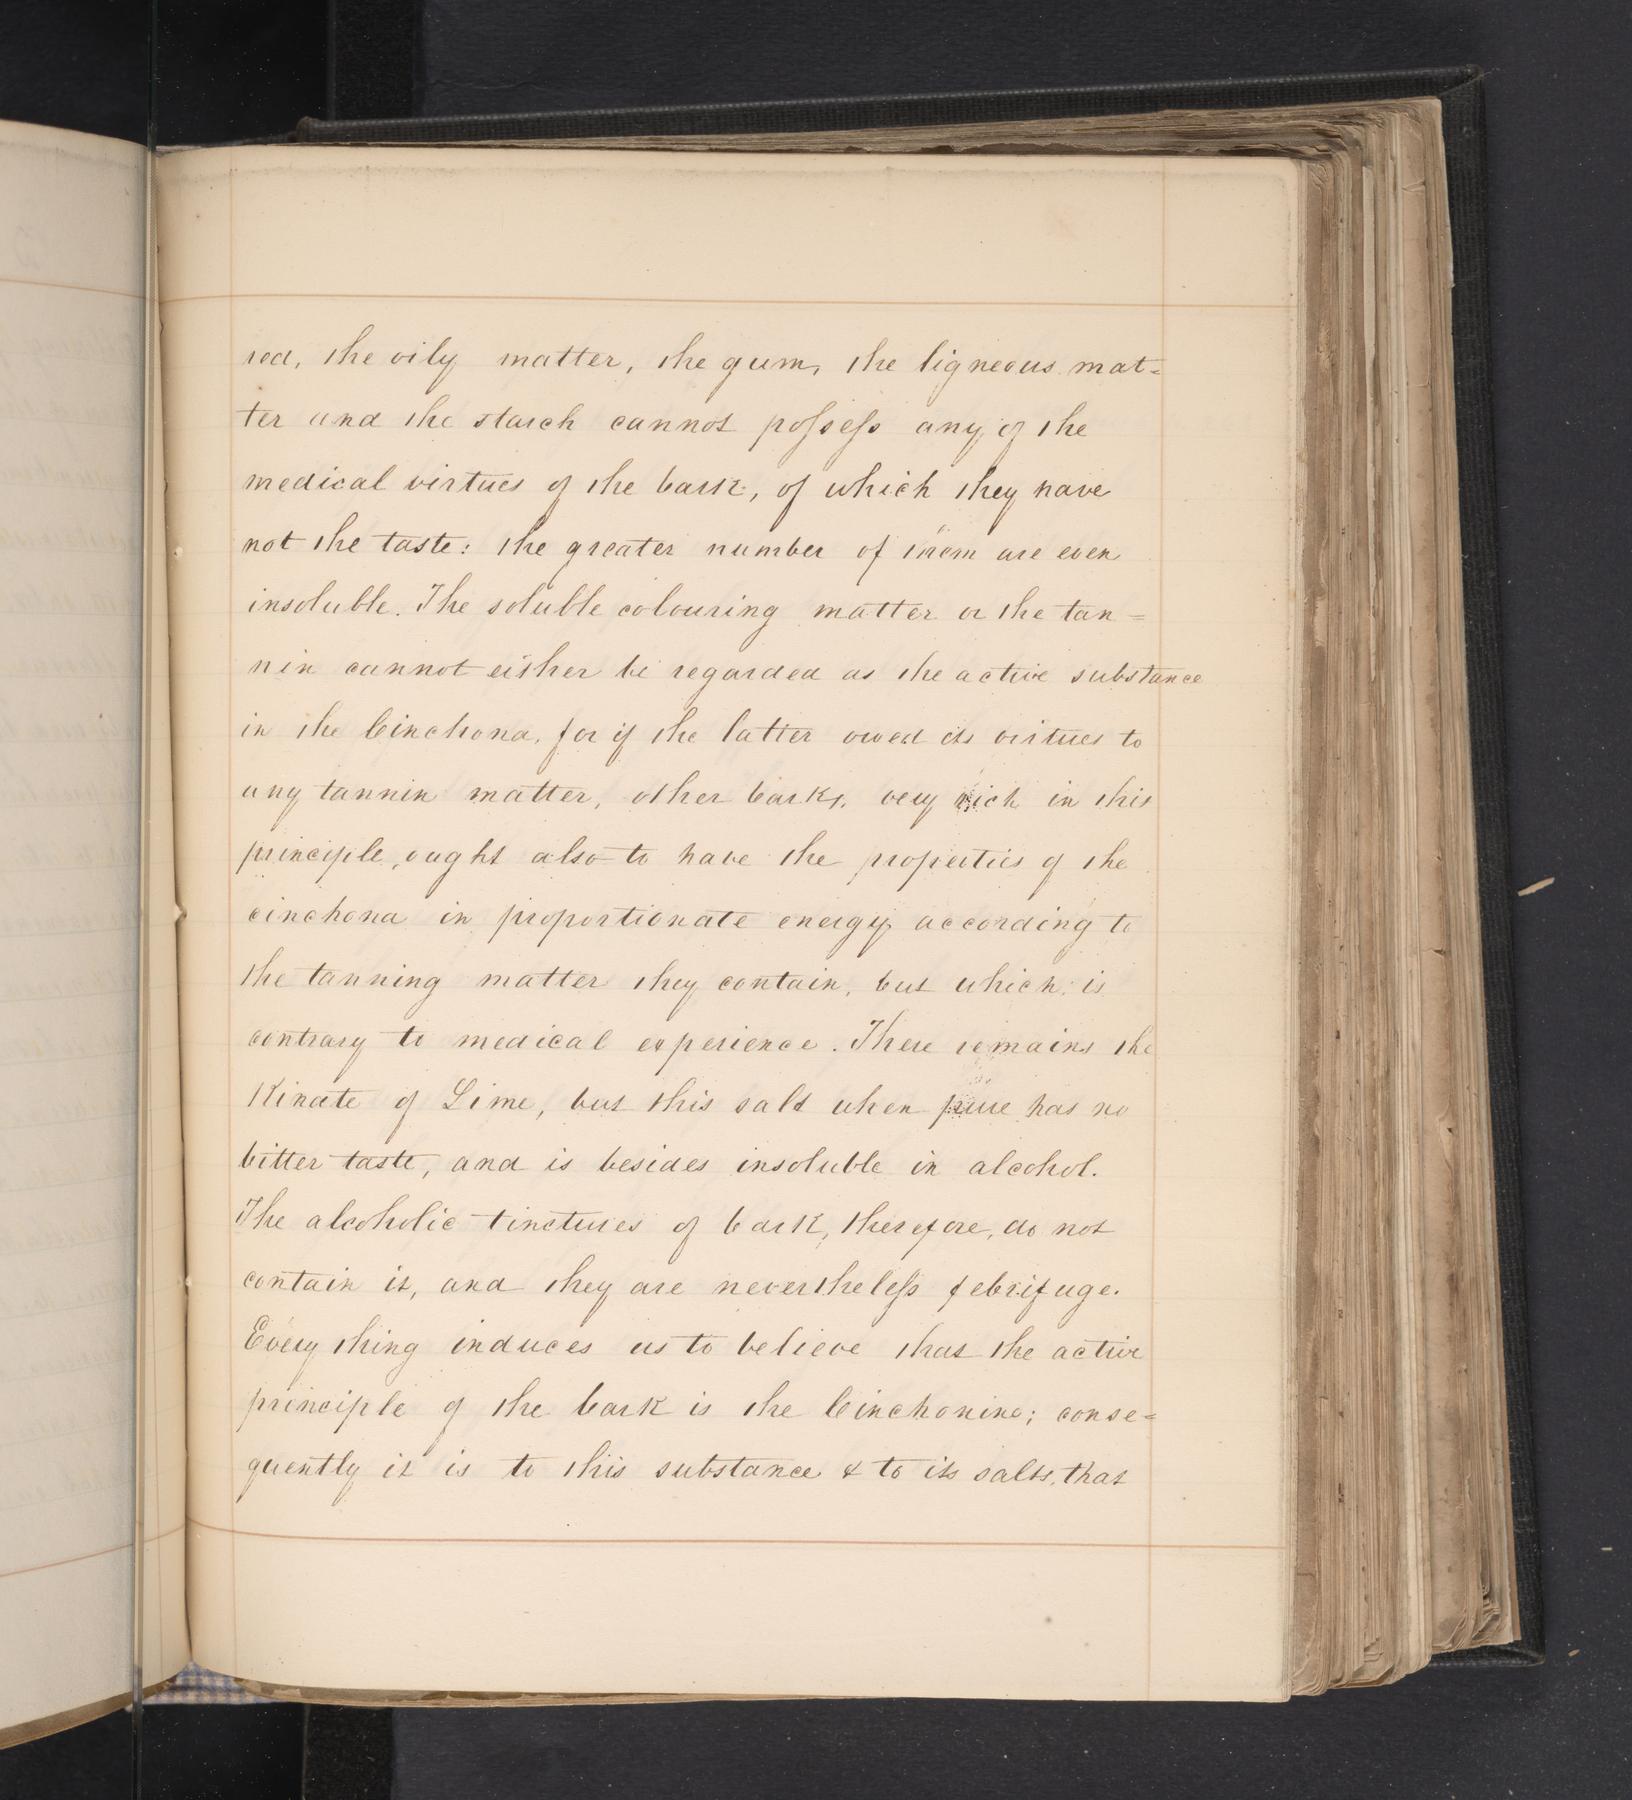 red, the oily matter, the gum, the ligneous mat=
ter and the starch cannot possess any of the
medical virtues of the bark, of which they have
not the taste: the greater number of them are even
insoluble. The soluble colouring matter or the tan=
nin cannot either be regarded as the active substance
in the Cinchona, for if the latter owed its virtues to
any tannin matter, other barks, very rich in this
principle, ought also to have the properties of the
cinchona in proportionate energy according to
the tanning matter they contain, but which is
contrary to medical experience. There remains the
Kinate of Lime, but this salt when pure has no
bitter taste, and is besides insoluble in alcohol.
The alcoholic tinctures of bark, therefore, do not
contain it, and they are nevertheless febrifuge.
Every thing induces us to believe that the active
principle of the bark is the Cinchonine; conse=
quently it is to this substance & to its salts, that